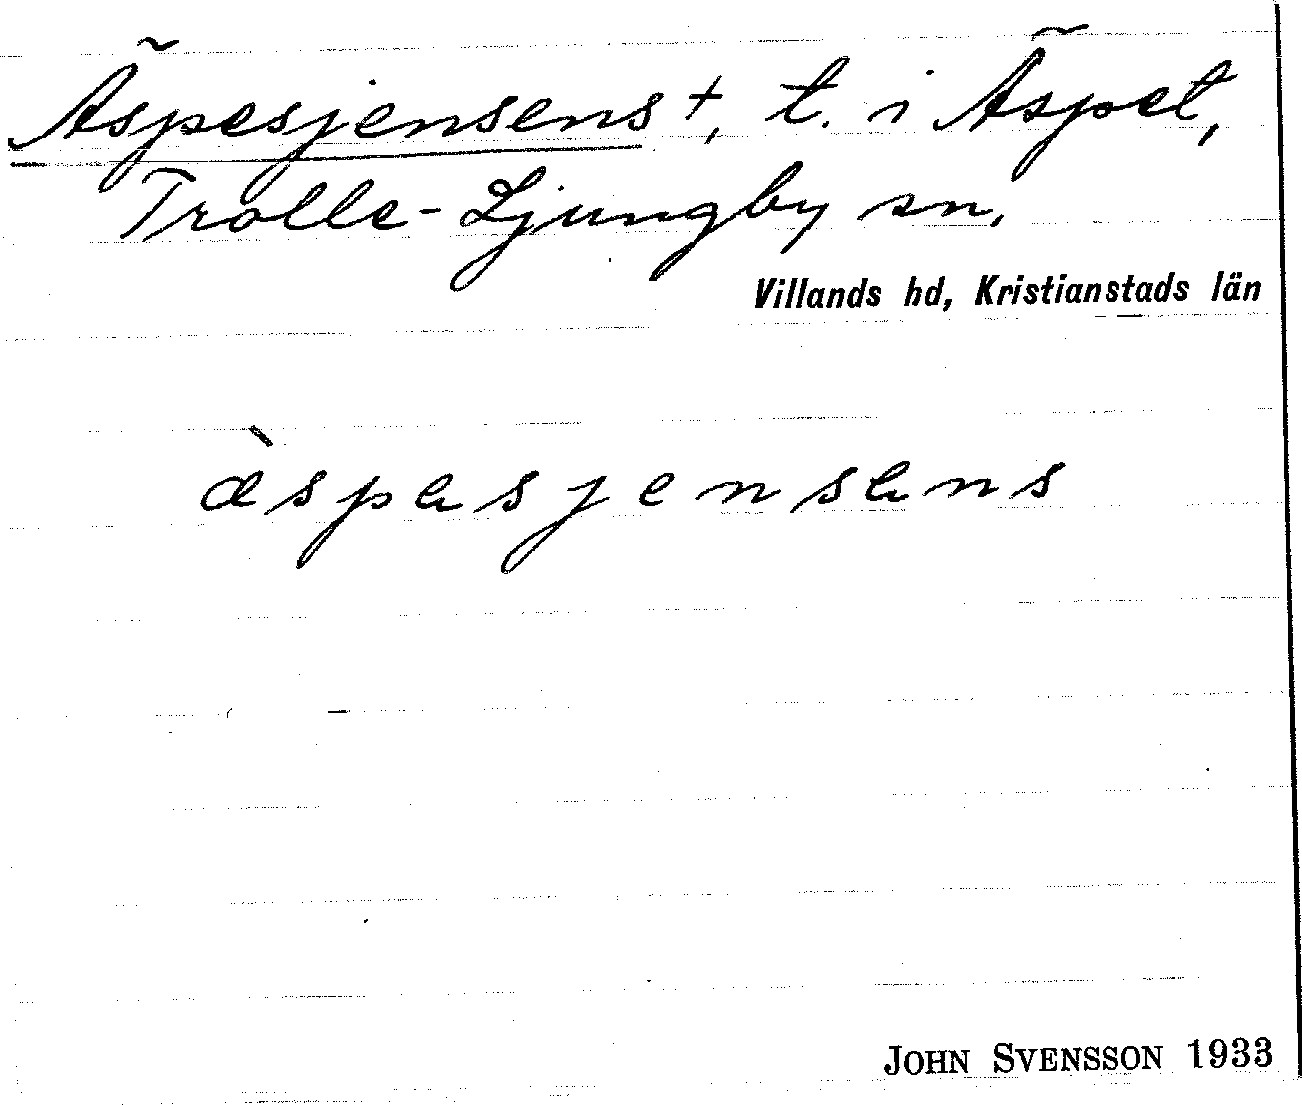 Äspesjensens +, t. i Äspet,
Trolle-Ljungby sn,
Villands hd, Kristianstads län
æ̀spasjensans
JOHN SVENSSON 1933